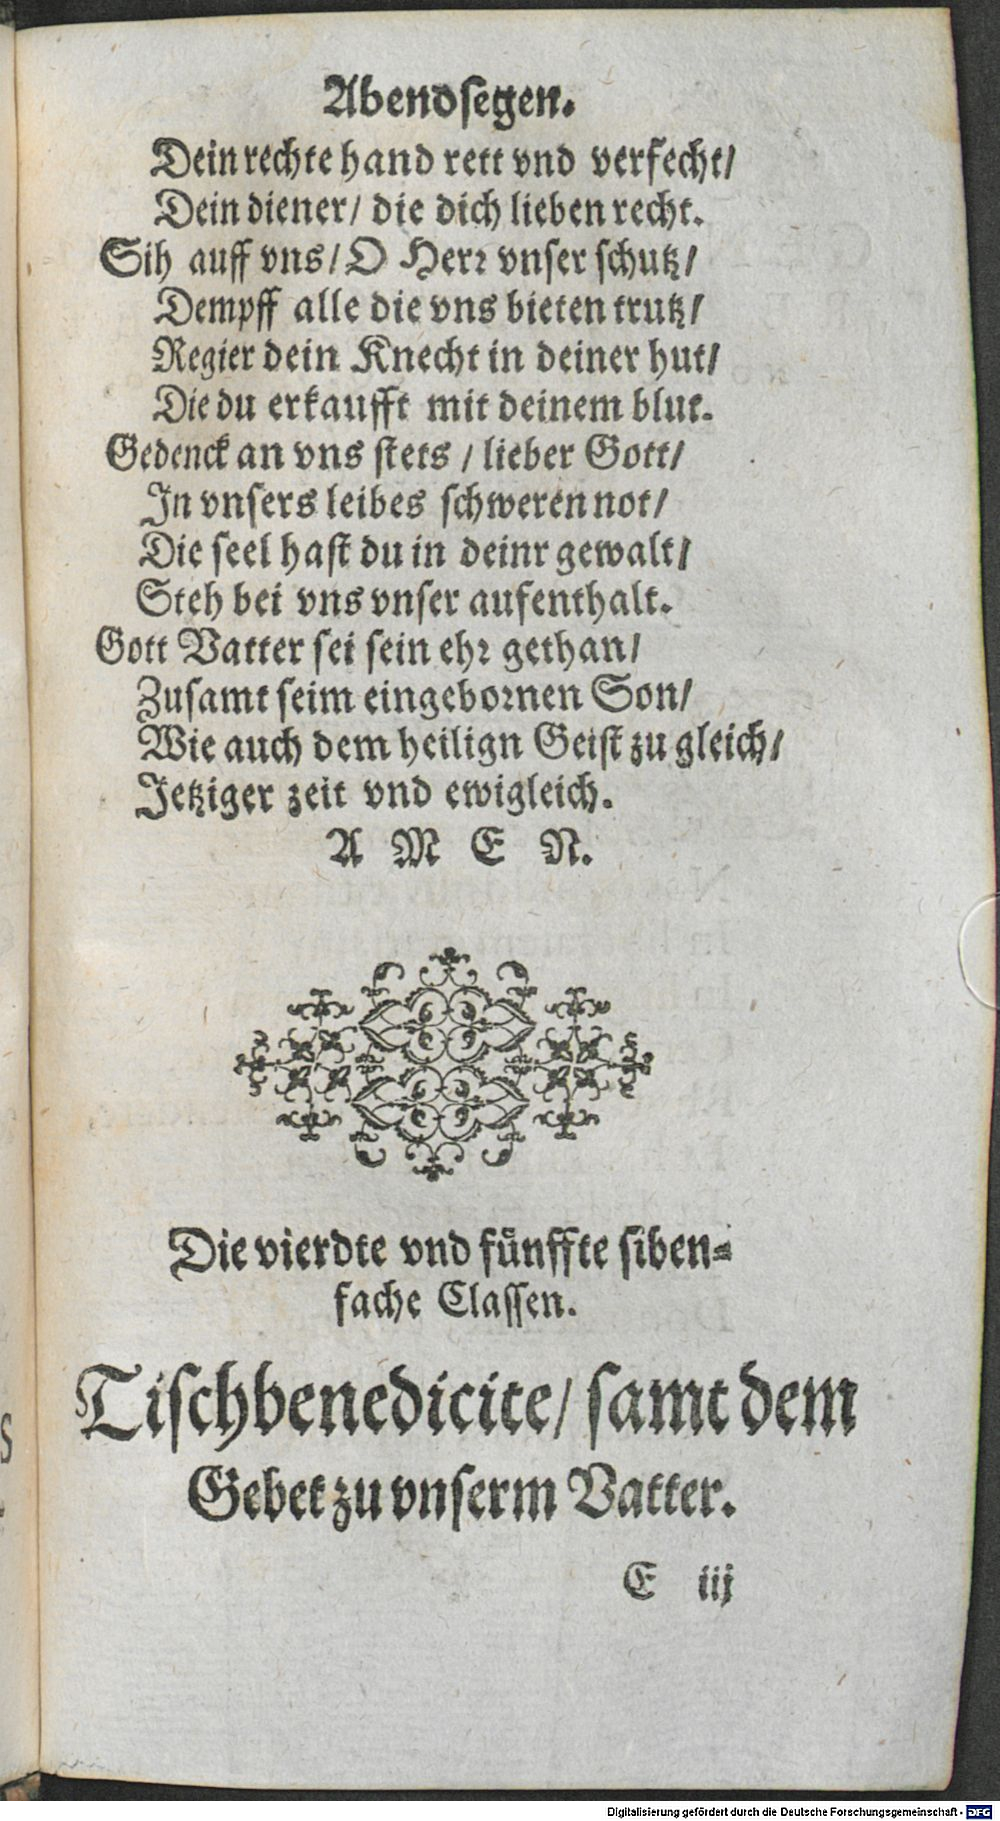 Abendſegen.
Dein rechte hand rett vnd verfecht/
Dein diener/ die dich lieben recht.
Sih auff vns/ O Herꝛ vnſer ſchutz/
Dempff alle die vns bieten trutz/
Regier dein Knecht in deiner hut/
Die du erkaufft mit deinem blut.
Gedenck an vns ſtets / lieber Gott/
In vnſers leibes ſchweren not/
Die ſeel haſt du in deinr gewalt/
Steh bei vns vnſer aufenthalt.
Gott Vatter ſei ſein ehꝛ gethan/
Zuſamt ſeim eingeboꝛnen Son/
Wie auch dem heilign Geiſt zu gleich/
Jetziger zeit vnd ewigleich.
A M E N.
Die vierdte vnd fuͤnffte ſiben-
fache Claſſen.
Tiſchbenedicite/ ſamt dem
Gebet zu vnſerm Vatter.
E iij
Digitalisierung gefördert durch die Deutsche Forschungsgemeinschaft - DFG